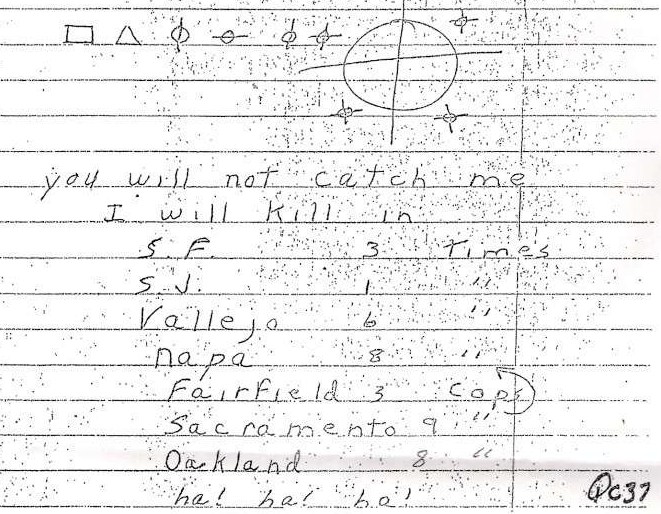 you will not catch me
I will kill in
S.F. 3 times
S.J. 1 "
Vallejo 6 "
napa 8 "
Fairfield 3 cops
Sacramento 9 "
Oakland 8 "
ha! ha! ha!
QC37